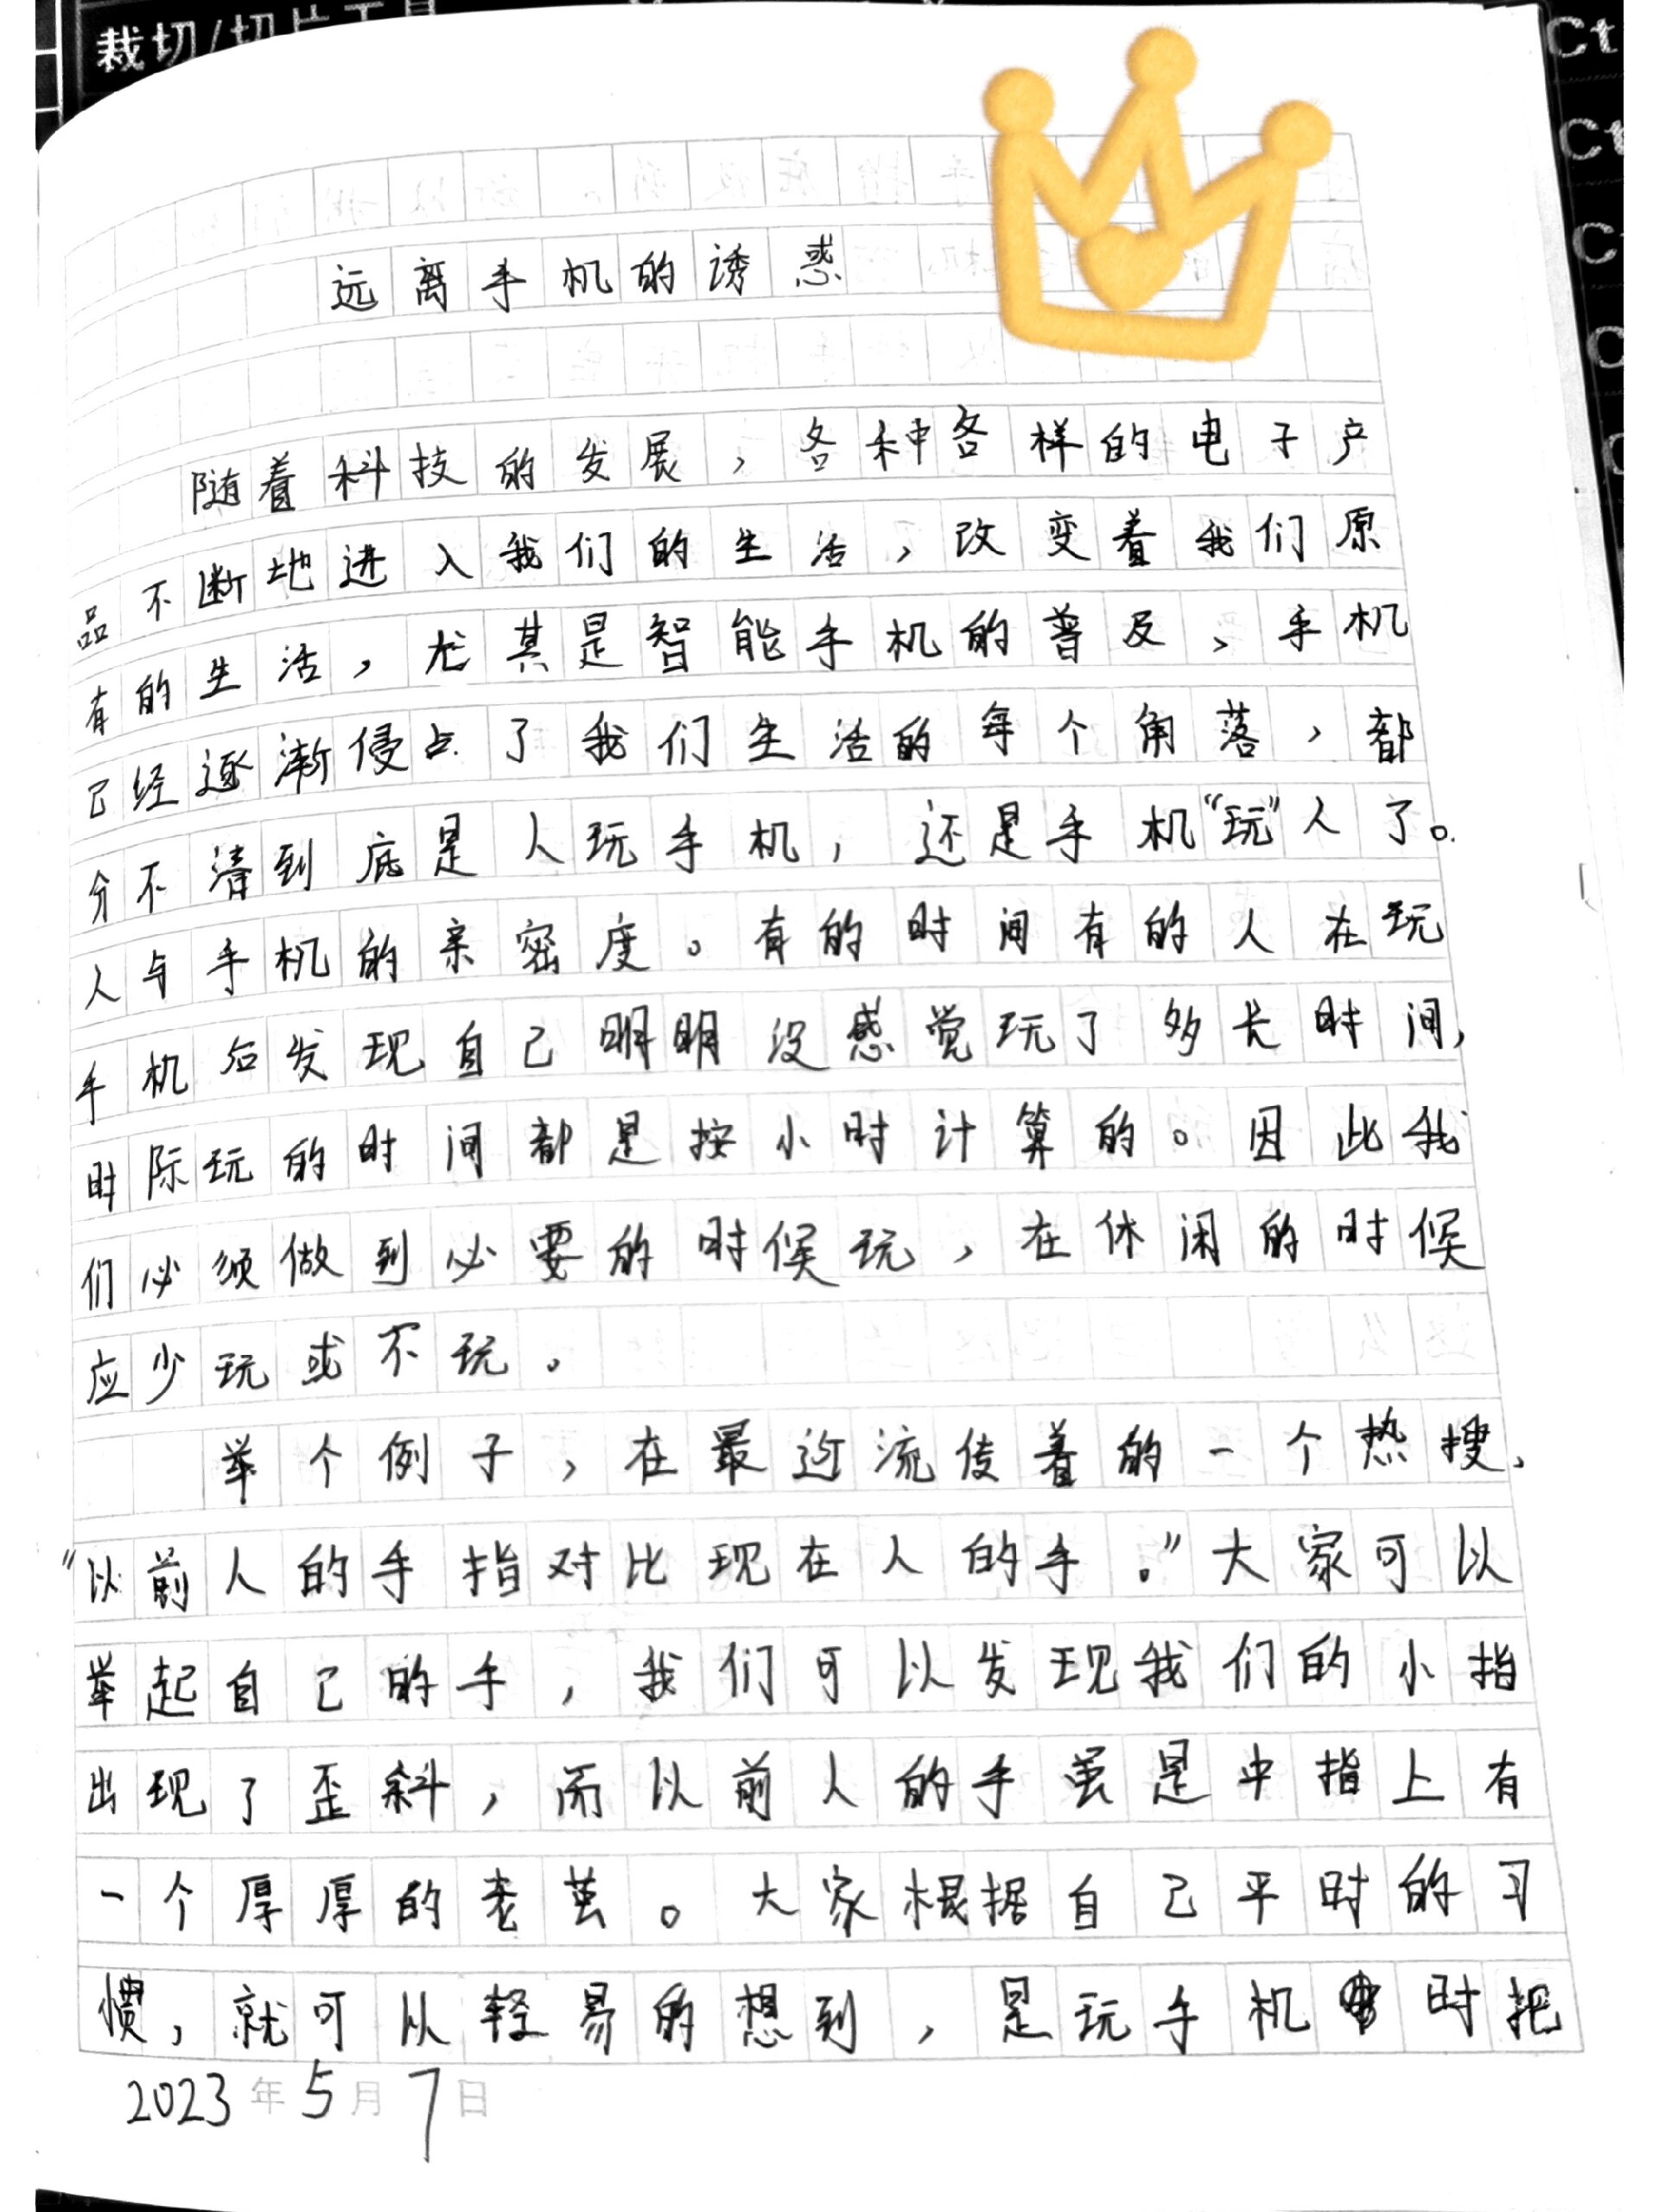 裁切/切片工具
Ct
Ct
远离手机的诱惑
随着科技的发展，各种各样的电子产
品不断地进入我们的生活，改变着我们原
有的生活，尤其是智能手机的普及、手机
已经逐渐侵占了我们生活的每个角落，都
分不清到底是人玩手机，还是手机“玩”人了。
人与手机的亲密度。有的时间有的人在玩
手机后发现自己明明没感觉玩了多长时间，
时际玩的时间都是按小时计算的。因此我
们必须做到必要的时候玩，在休闲的时候
应少玩或不玩。
举个例子，在最近流传着的一个热搜、
“以前人的手指对比现在人的手。”大家可以
举起自己的手，我们可以发现我们的小指
出现了歪斜，而以前人的手茧是中指上有
一个厚厚的老茧。大家根据自己平时的习
惯，就可以轻易的想到，是玩手机时把
2023年5月7日